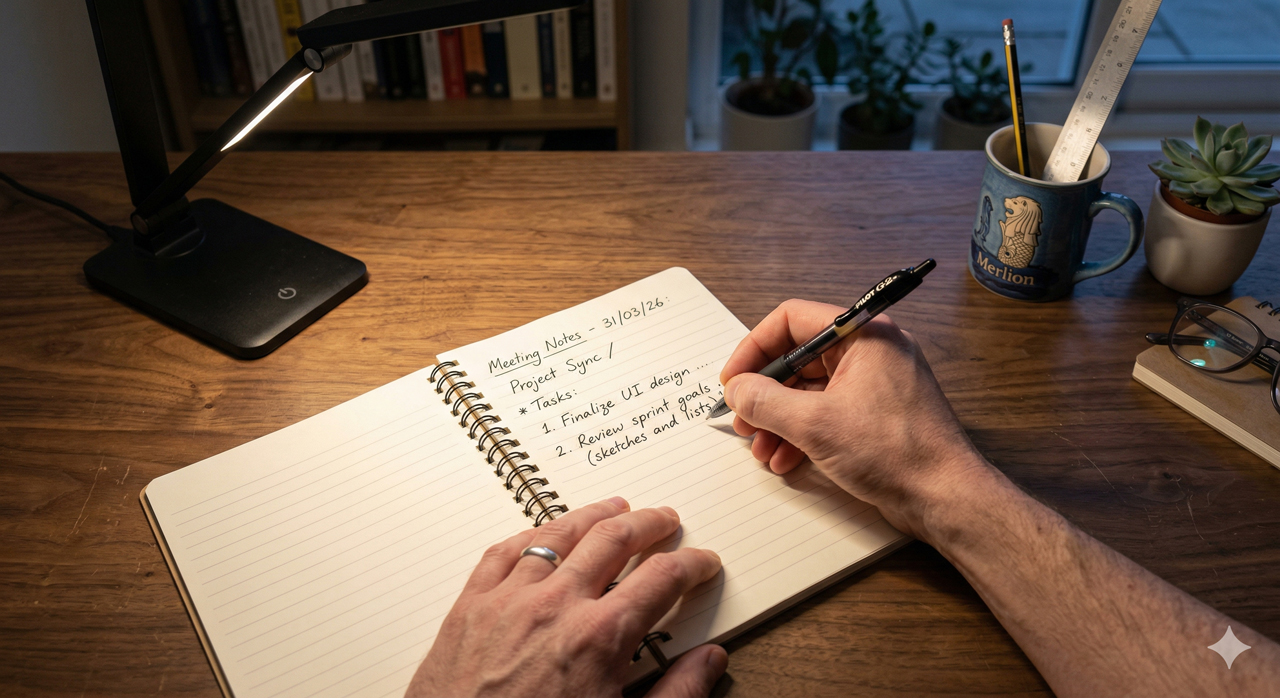 Meeting Notes - 31/03/26:
Project Sync /
* Tasks:
1. Finalize UI design ....
2. Review sprint goals
(sketches and lists)
PILOT G-2
Merlion